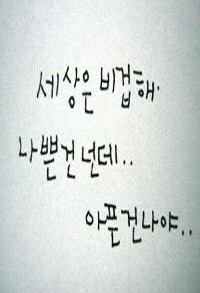 세상은 비겁해.
나쁜건 넌데..
아픈건나야..